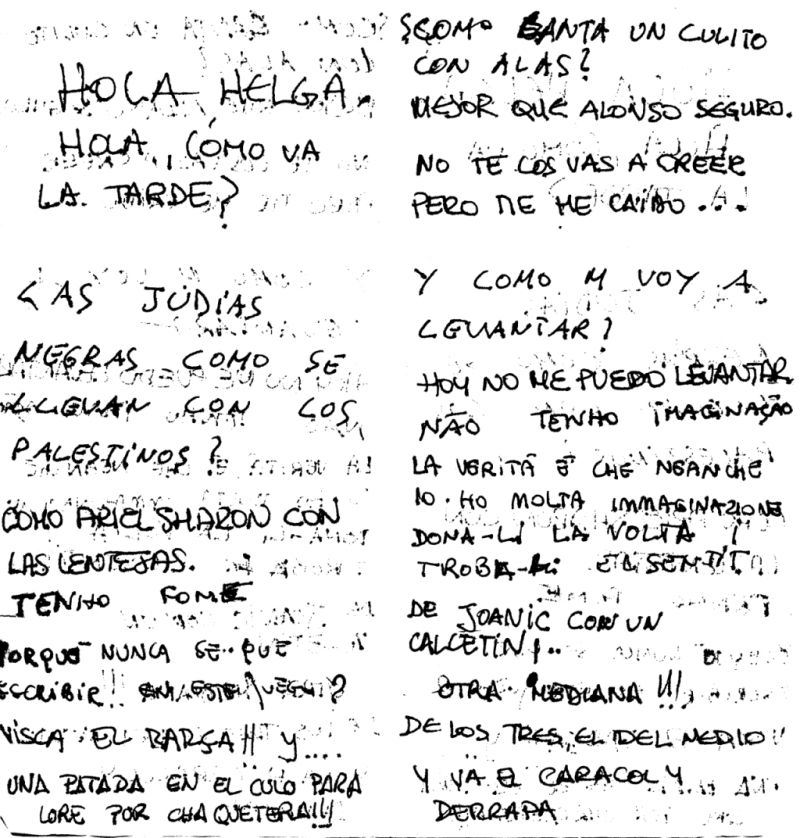 HOLA HELGA.
HOLA, CÓMO VA
LA TARDE?
LAS JUDÍAS
NEGRAS COMO SE
LLEVAN CON LOS
PALESTINOS?
COMO ARIEL SHARON CON
LAS LENTEJAS.
TENHO FOME
PORQUE NUNCA SE QUE
ESCRIBIR!! EN ESTE JUEGO?
VISCA EL BARÇA!! Y....
UNA PATADA EN EL CULO PARA
LORE POR CHAQUETERA!!!
¿COMO CANTA UN CULITO
CON ALAS?
MEJOR QUE ALONSO SEGURO.
NO TE LOS VAS A CREER
PERO ME HE CAIDO ...
Y COMO M VOY A
LEVANTAR?
HOY NO ME PUEDO LEVANTAR
NÃO TENHO IMAGINAÇÃO
LA VERITÀ È CHE NEANCHE
IO HO MOLTA IMMAGINAZIONE
DONA-LI LA VOLTA I
TROBA-LI EL SENTIT
DE JOANIC CON UN
CALCETIN!..
OTRA MEDIANA !!!
DE LOS TRES, EL DEL MEDIO!!
Y VA EL CARACOL Y
DERRAPA